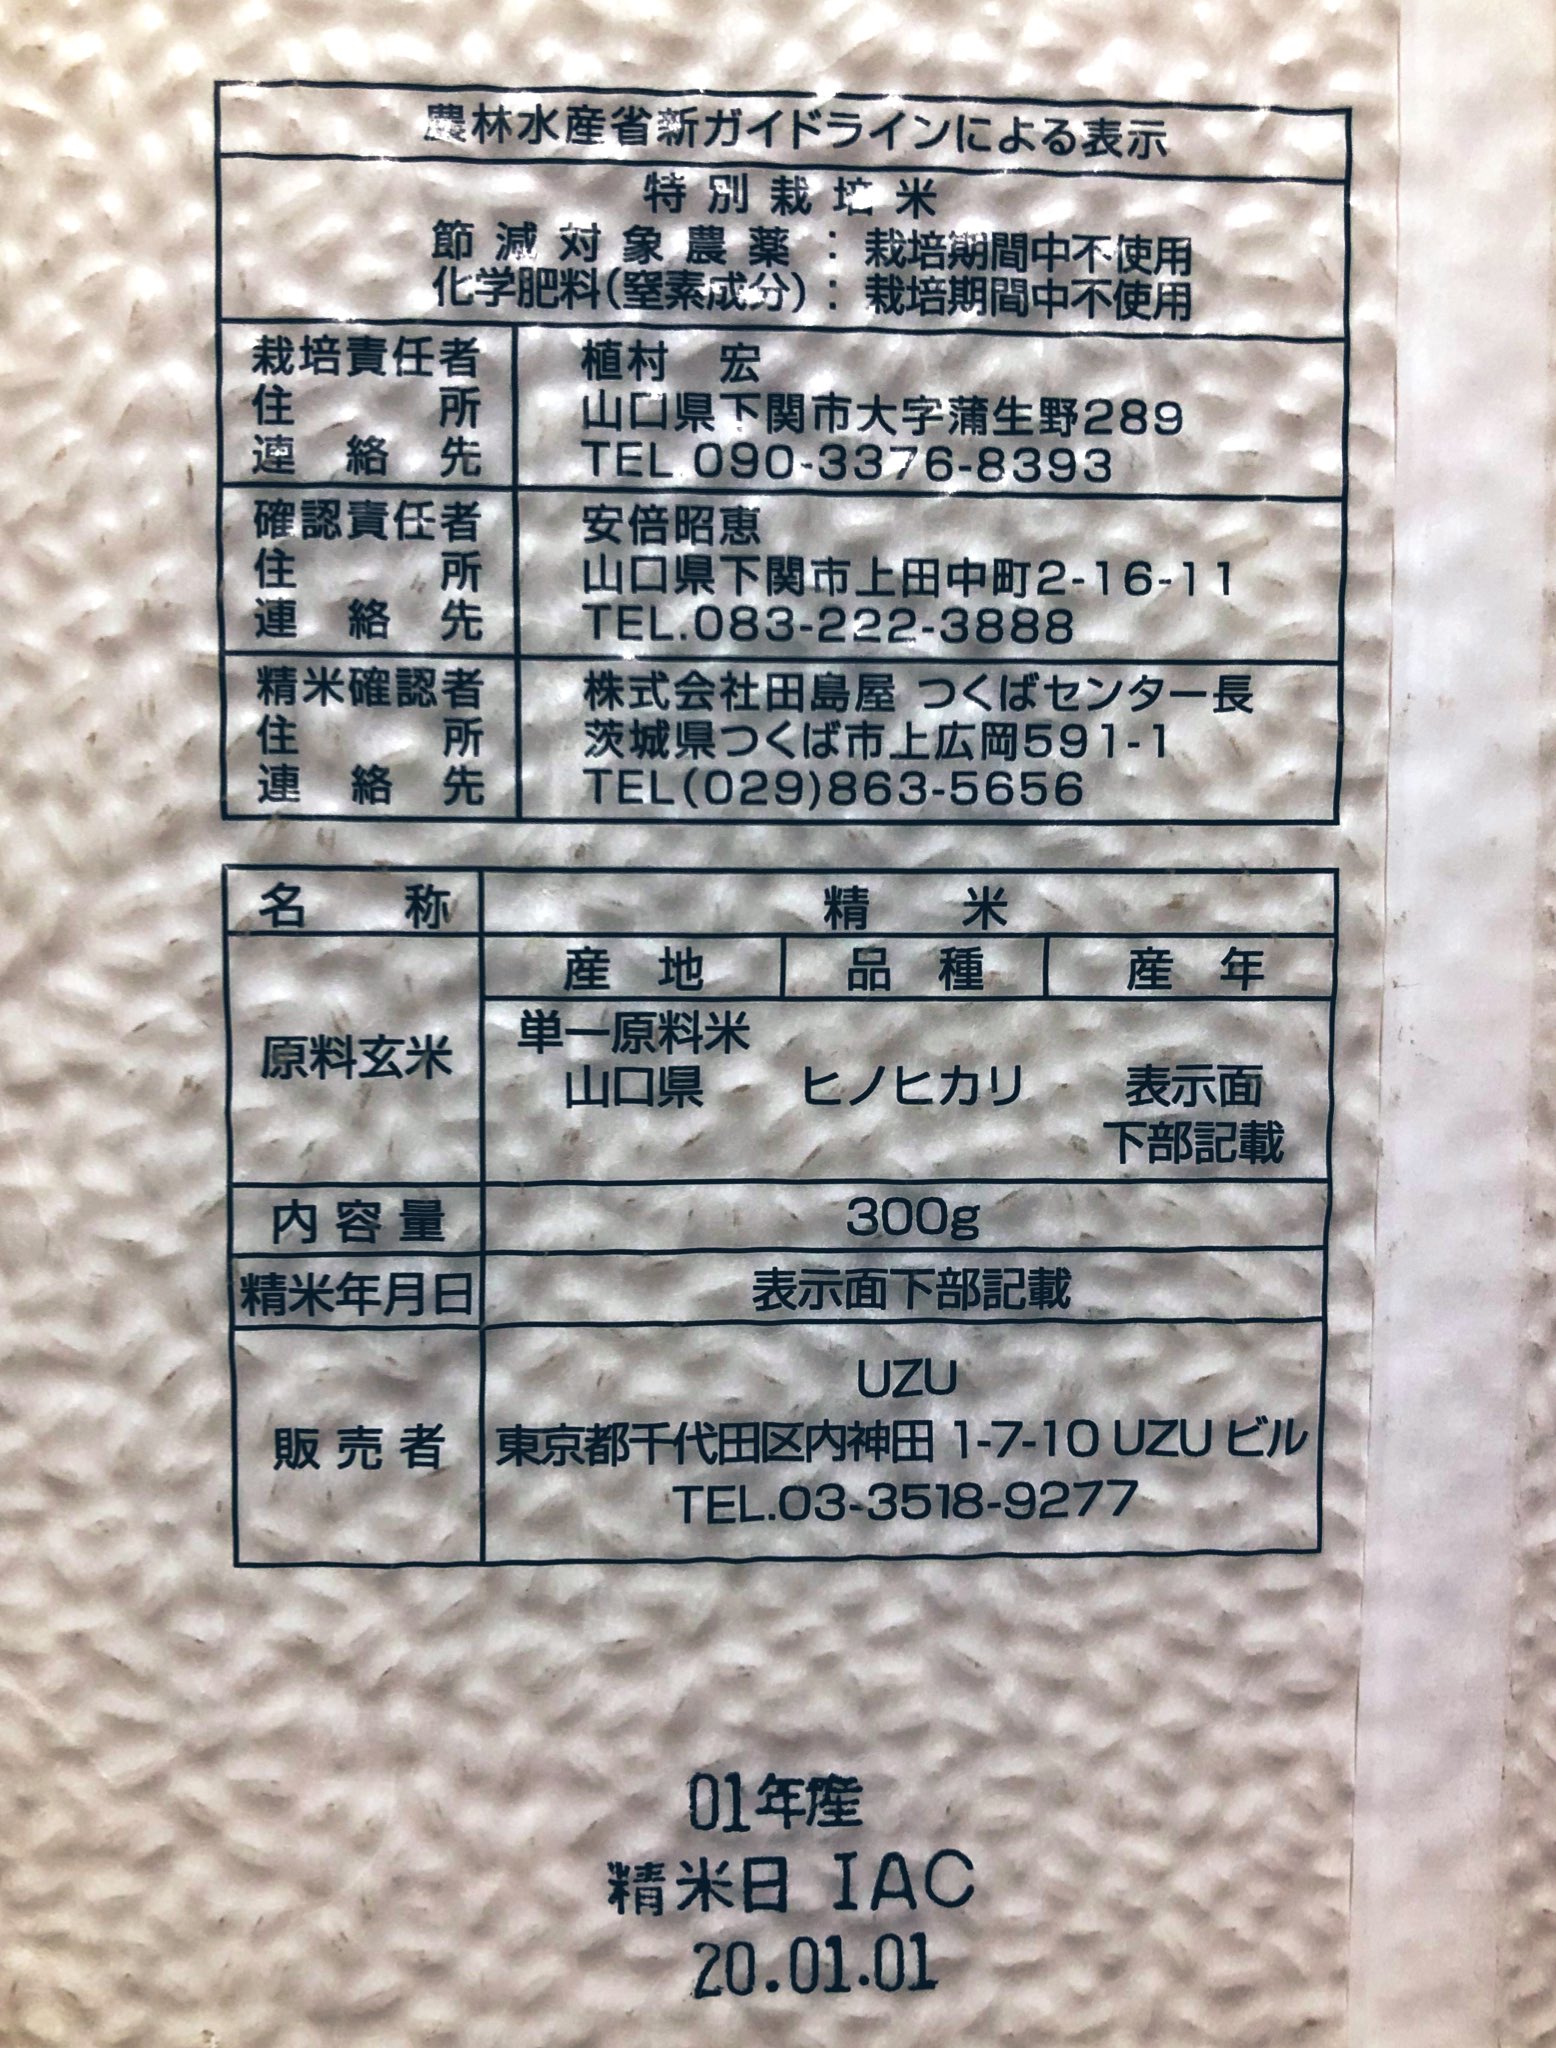 農林水産省新ガイドラインによる表示
特別栽培米
節減対象農薬：栽培期間中不使用
化学肥料(窒素成分)：栽培期間中不使用
栽培責任者 植村 宏
住所 山口県下関市大字蒲生野289
連絡先 TEL 090-3376-8393
確認責任者 安倍昭恵
住所 山口県下関市上田中町2-16-11
連絡先 TEL.083-222-3888
精米確認者 株式会社田島屋 つくばセンター長
住所 茨城県つくば市上広岡591-1
連絡先 TEL(029)863-5656
名称 精米
産地 品種 産年
原料玄米 単一原料米
山口県 ヒノヒカリ 表示面
下部記載
内容量 300g
精米年月日 表示面下部記載
UZU
販売者 東京都千代田区内神田 1-7-10 UZU ビル
TEL.03-3518-9277
01年産
精米日 IAC
20.01.01